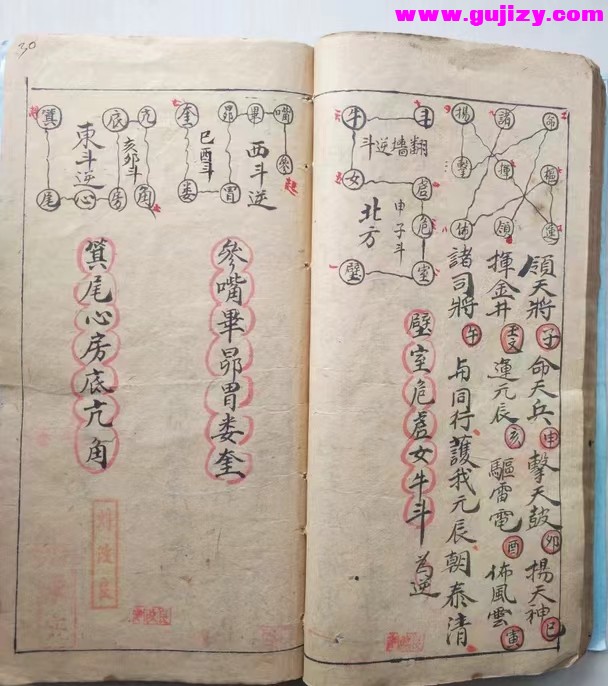 www.gujizy.com
30
揚 諸 命
擊 揮 驅
佈 領 運
領天將子命天兵申擊天鼓卯揚天神巳
揮金井運元辰亥驅雷電酉佈風雲寅
諸司將午与同行護我元辰朝泰清
牛 斗
斗逆墻翻
女 虛
危
北方
申子斗
壁 室
壁室危虛女牛斗為逆
奎 昴 畢 嘴
巳酉斗
西斗逆
參 起
婁 胃
參嘴畢昴胃娄奎
箕 底 亢
東斗逆
亥卯斗
尾 心 房 角
箕尾心房底亢角